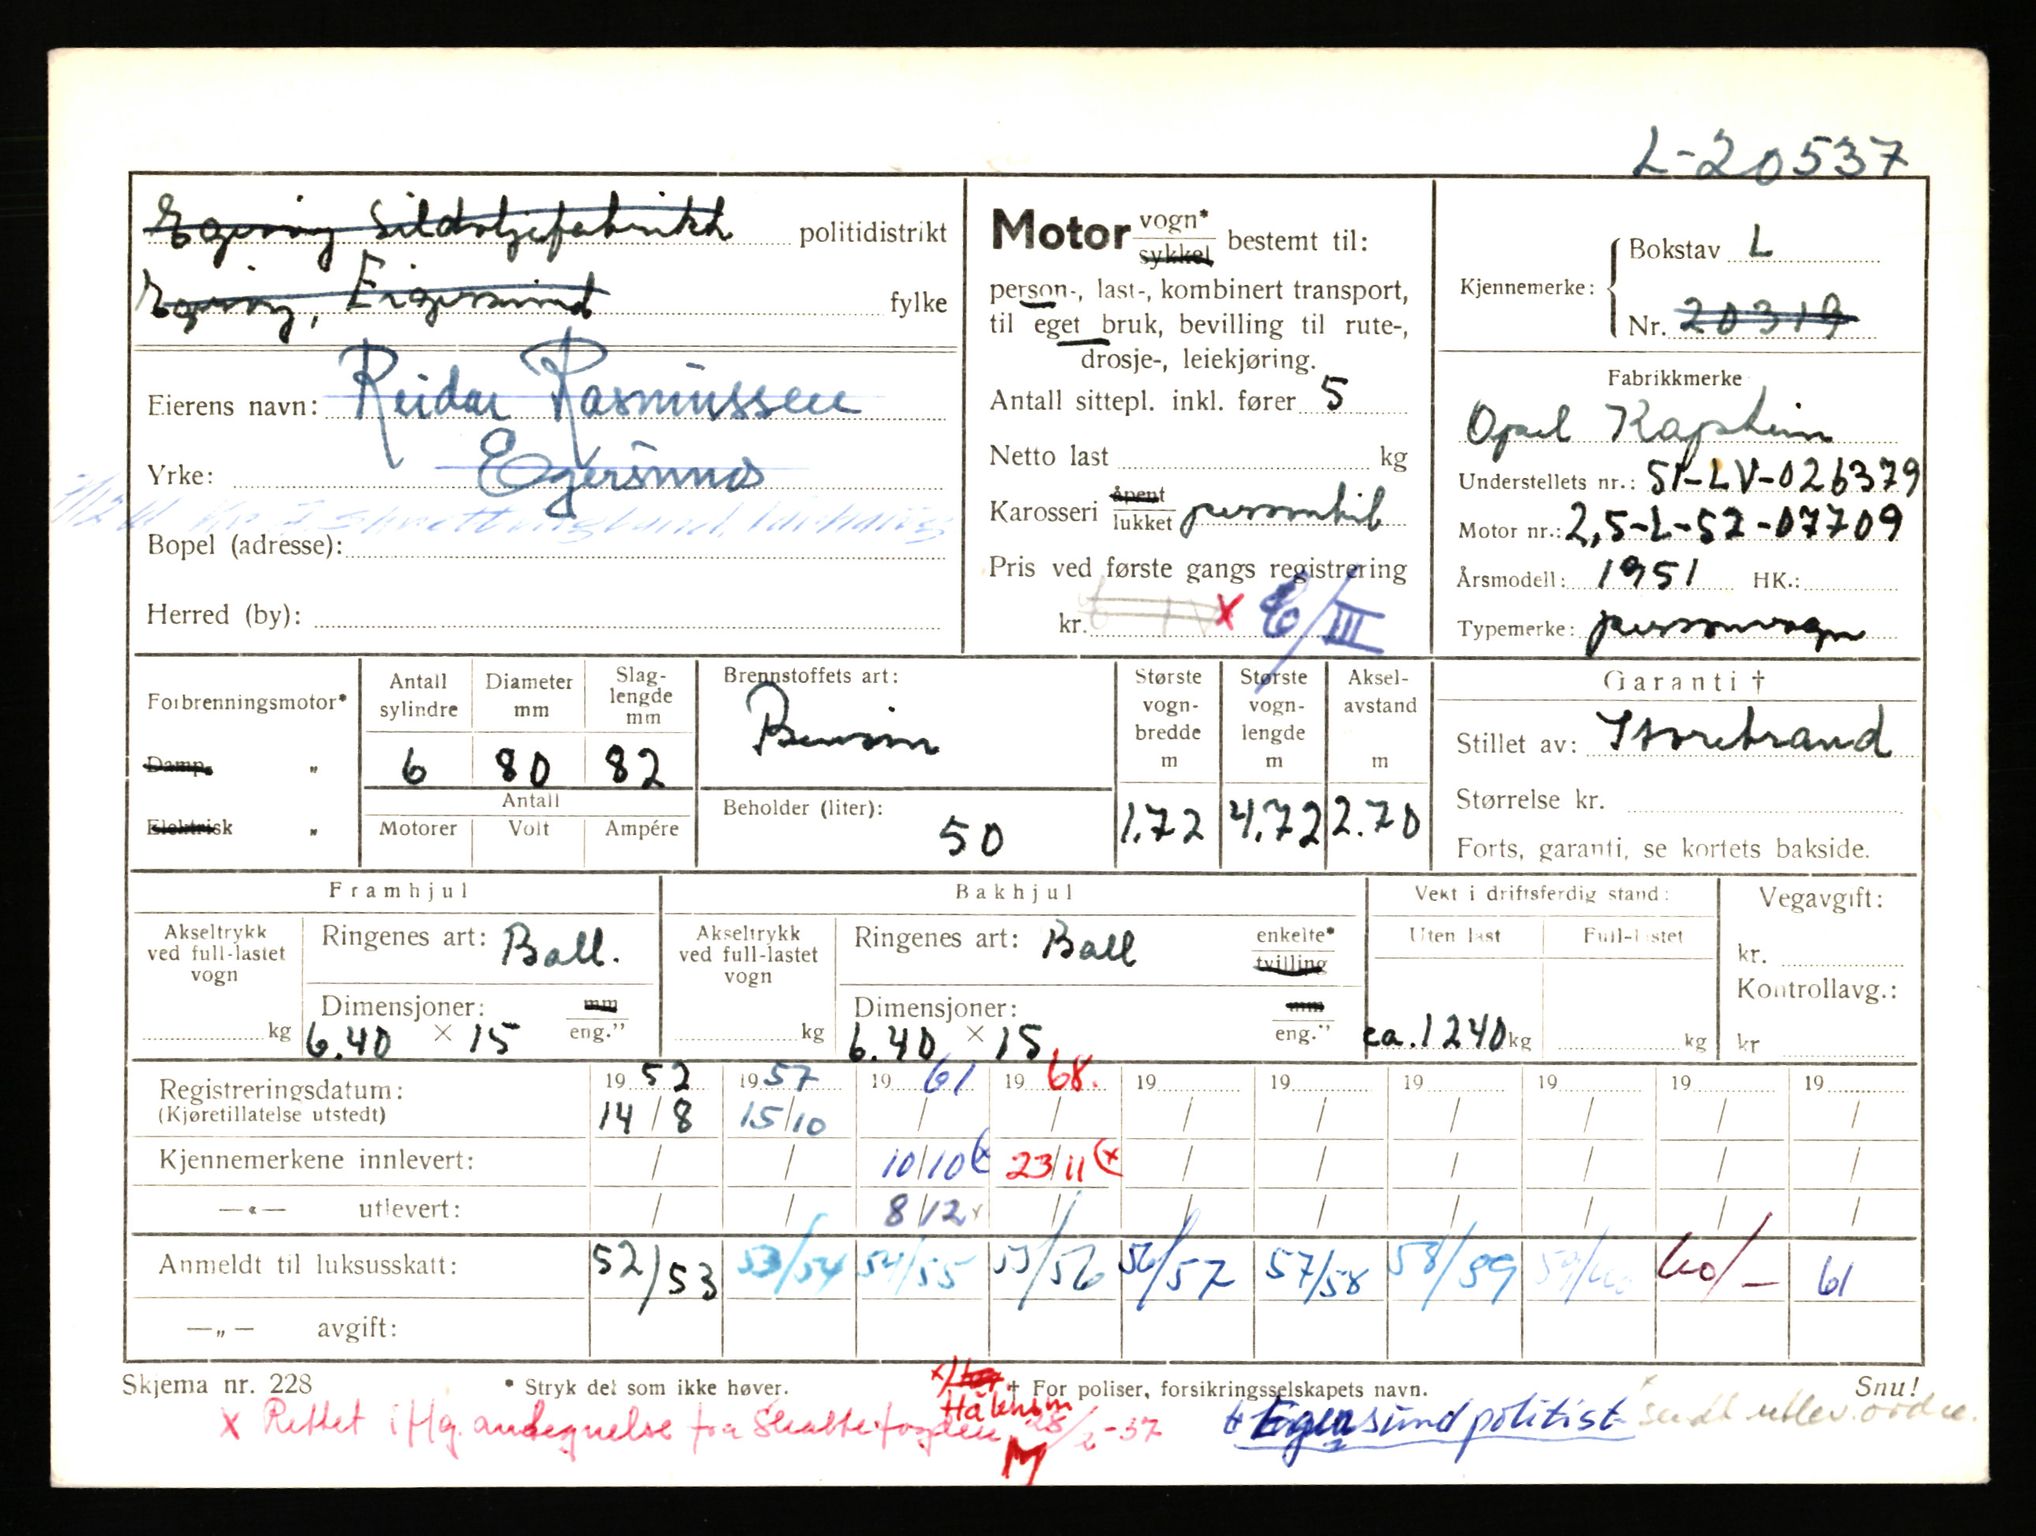 L-20537
Egerøy Sildoljefabrikk politidistrikt
Egerøy, Eigersund fylke
Eierens navn: Reidar Rasmussen
Egersund
Yrke:
Bopel (adresse):
Herred (by):
Motor vogn* sykkel bestemt til:
person-, last-, kombinert transport,
til eget bruk, bevilling til rute-,
drosje-, leiekjøring.
Antall sittepl. inkl. fører 5
Netto last kg
Karosseri åpent lukket personbil
Pris ved første gangs registrering
kr. x C/III
Kjennemerke: Bokstav L
Nr. 20319
Fabrikkmerke
Opel Kaptein
Understellets nr.: 51-LV-026379
Motor nr.: 2,5-L-52-07709
Årsmodell: 1951 HK.:
Typemerke: personvogn
Forbrenningsmotor*
Damp. „
Elektrisk „
Antall sylindre 6
Diameter mm 80
Slaglengde mm 82
Antall
Motorer Volt Ampére
Brennstoffets art:
Bensin
Beholder (liter):
50
Største vogn-bredde m 1.72
Største vogn-lengde m 4.72
Aksel-avstand m 2.70
Garanti †
Stillet av: Storebrand
Størrelse kr.
Forts, garanti, se kortets bakside.
Framhjul
Akseltrykk ved full-lastet vogn kg
Ringenes art: Ball.
Dimensjoner: mm eng."
6.40 × 15
Bakhjul
Akseltrykk ved full-lastet vogn kg
Ringenes art: Ball enkelte* tvilling
Dimensjoner: mm eng."
6.40 × 15
Vekt i driftsferdig stand:
Uten last Full-lastet
ca. 1240 kg kg
Vegavgift:
kr.
Kontrollavg.:
kr
Registreringsdatum: 19 52 19 57 19 61 19 68. 19 19 19 19 19 19
(Kjøretillatelse utstedt) 14/8 15/10 / / / / / / / /
Kjennemerkene innlevert: / / 10/10 (x 23/11 (x / / / / / /
—«— utlevert: / / 8/12 x / / / / / / /
Anmeldt til luksusskatt: 52/53 53/54 54/55 55/56 56/57 57/58 58/59 59/60 60/— 61
—„— avgift:
Skjema nr. 228 * Stryk det som ikke høver. † For poliser, forsikringsselskapets navn. Snu!
x Rettet i Hg. andegnelse fra Skattefogden 28/2-57
Egersund politist. sendt utlev.ordre.